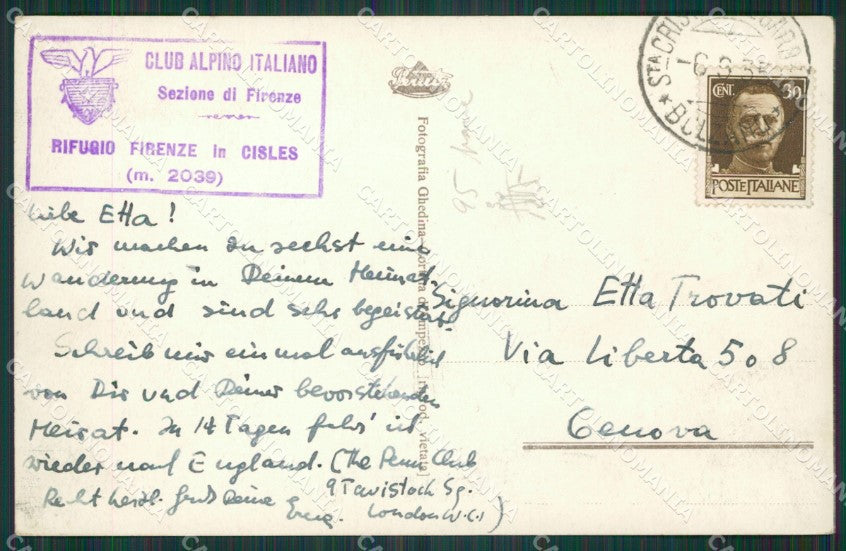 CLUB ALPINO ITALIANO
Sezione di Firenze
RIFUGIO FIRENZE in CISLES
(m. 2039)
Liebe Etta!
Wir machen zu sechst eine
Wanderung in Deinem Heimat-
land und sind sehr begeistert.
Schreib mir einmal ausführlich
von Dir und Deiner bevorstehenden
Heirat. In 14 Tagen fahr' ich
wieder nach England. (The Penn Club
9 Tavistock Sq.
London W.C.1)
Recht herzl. Gruß Deine
Fotografia Ghedina - Cortina d'Ampezzo
vietata
95
STA CRISTINA
-6.8.3
CENT. 30
POSTE ITALIANE
Signorina Etta Trovati
Via Liberta 508
Genova
CARTOLINOMANIA